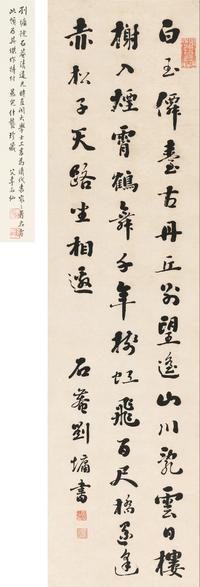 白玉僊臺古丹丘別望遙山川亂雲日樓
榭入煙霄鶴舞千年樹虹飛百尺橋還逢
赤松子天路坐相邀
石菴劉墉書
劉墉 石菴清 大學士工書為清代書家之著名者
此幀乃其傑作 什襲珍藏